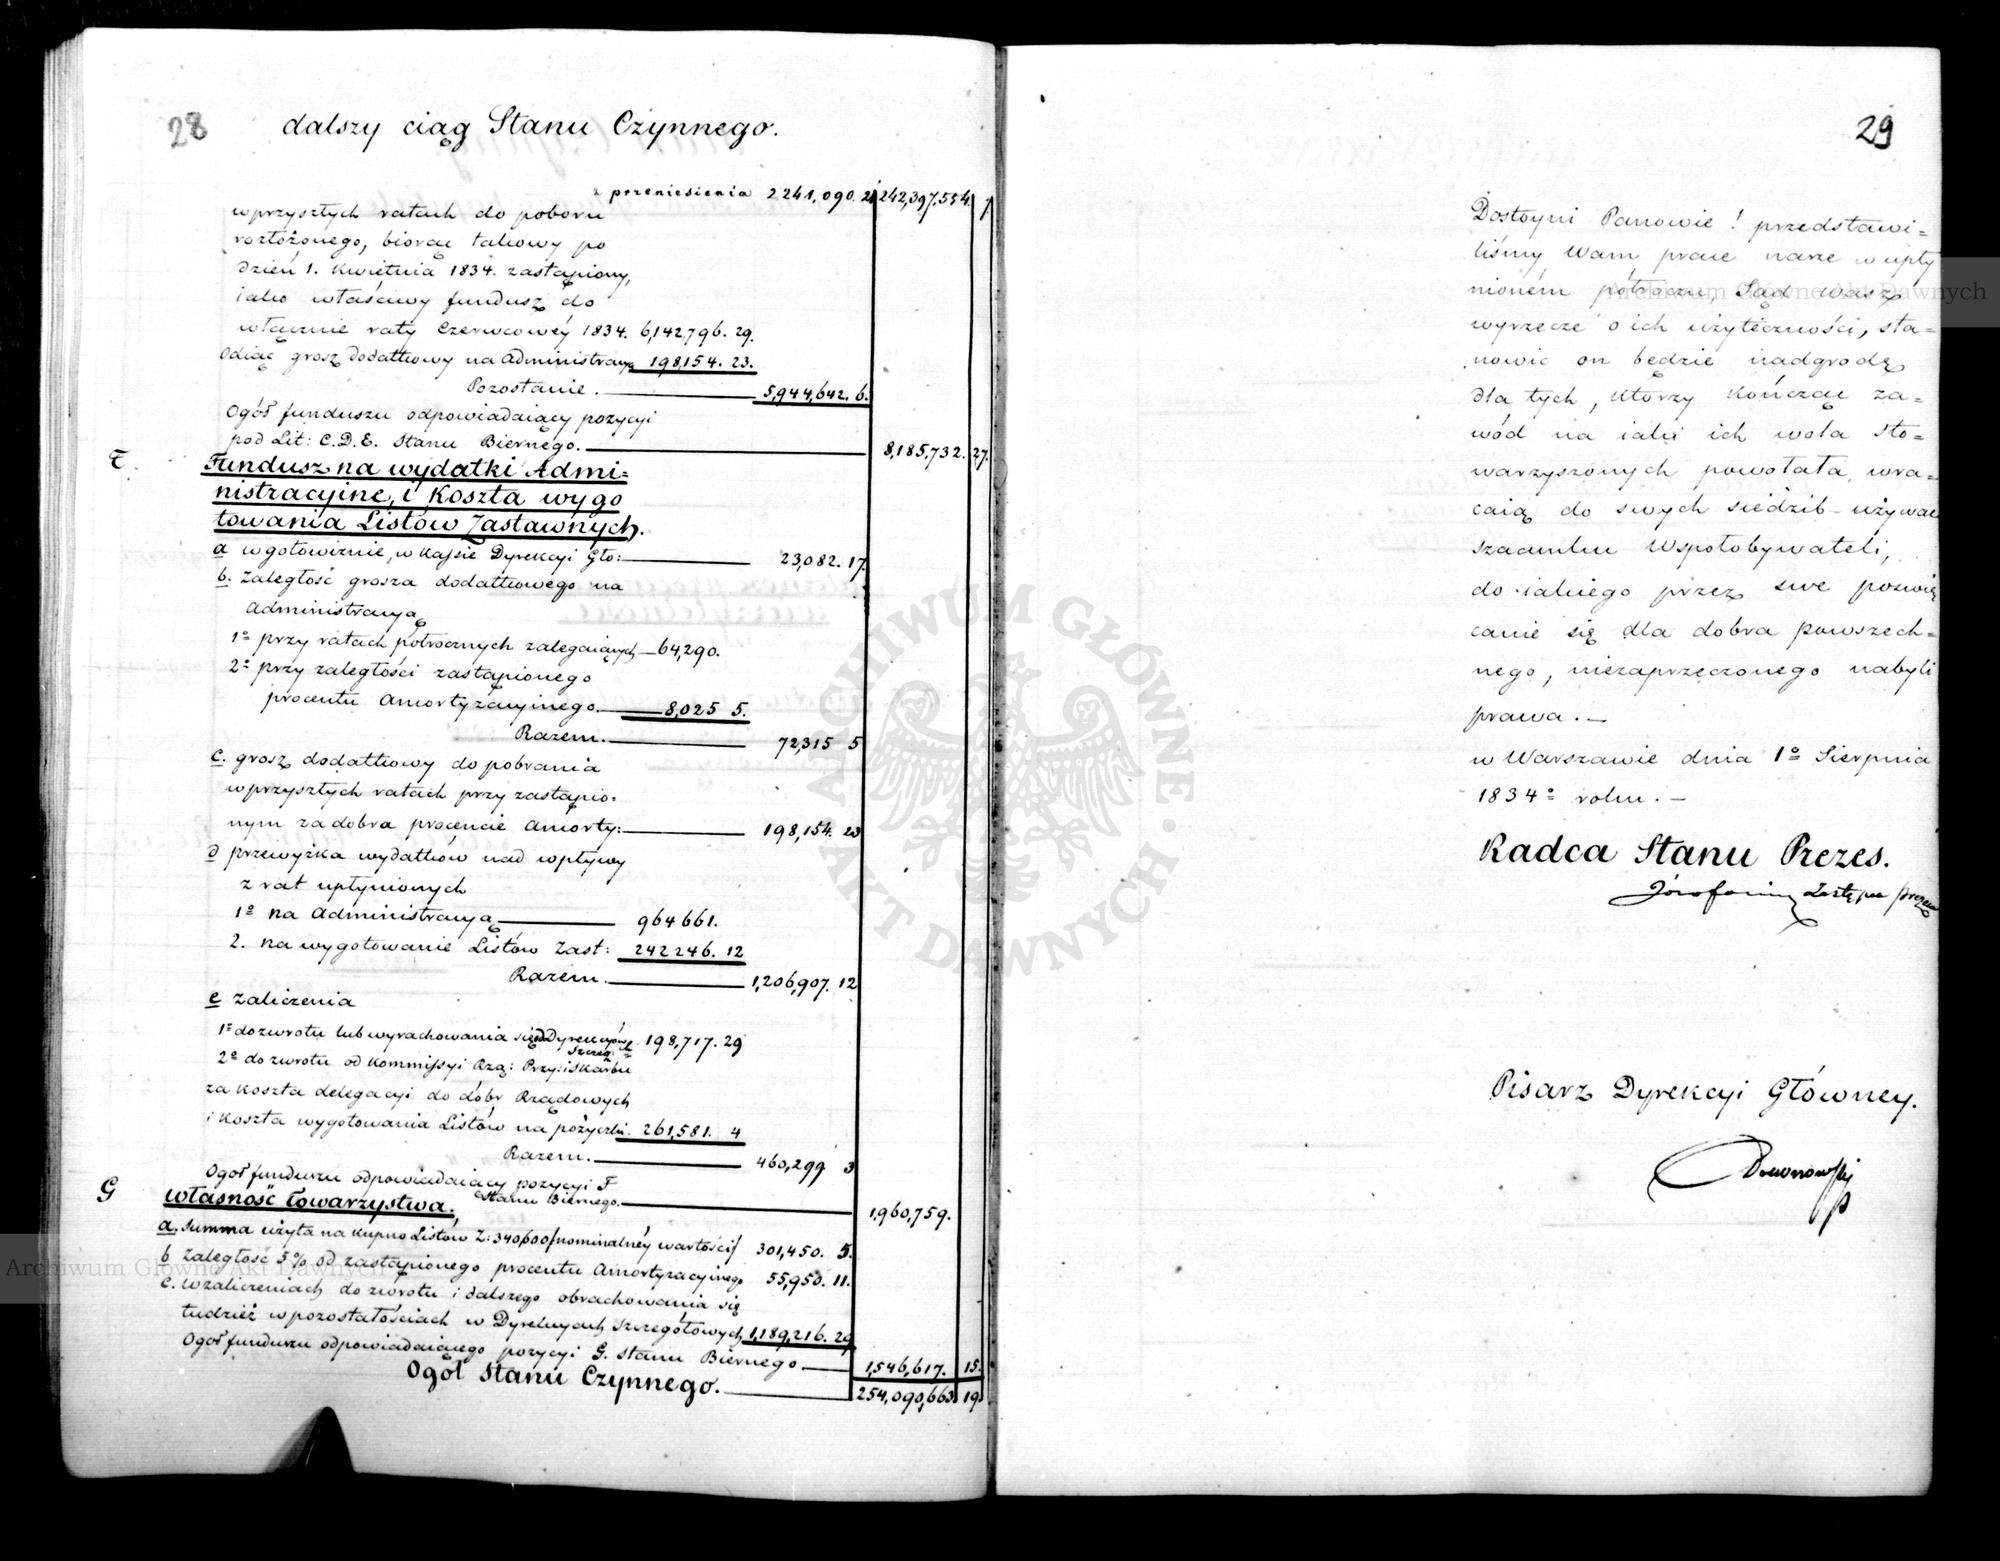 28
dalszy ciąg Stanu Czynnego.
z przeniesienia 2241,090. 21 242,397.554. 7.
wprzyszłych ratach do poboru
rozłożonego, biorąc takowy po
dzień 1. Kwietnia 1834. zastąpiony,
iako właściwy fundusz do
włącznie raty Czerwcowéy 1834. 6,142,796. 29.
Odiąć grosz dodatkowy na Administracyą 198,154. 23.
Pozostanie. 5,944,642. 6.
Ogół funduszu odpowiadaiący pozycyi
pod Lit: C.D.E. Stanu Biernego. 8,185,732. 27.
F. Fundusz na wydatki Admi=
nistracyine, i Koszta wygo
towania Listów Zastawnych.
a w gotowiznie, w Kassie Dyrekcyi Gło: 23,082. 17.
b. Zaległość grosza dodatkowego na
Administracyą
1º przy ratach półrocznych zalegaiących 64,290.
2º przy zaległości zastąpionego
procentu Amortyzacyinego. 8,025 5.
Razem. 72,315 5
c. grosz dodatkowy do pobrania
wprzyszłych ratach przy zastąpio=
nym za dobra procencie Amorty: 198,154. 23
d przewyżka wydatków nad wpływy
z rat upłynionych
1º na Administracyą 964661.
2. na wygotowanie Listów Zast: 242246. 12
Razem. 1,206,907. 12
e zaliczenia
1º do zwrotu lub wyrachowania się od Dyrekcyów Szczeg: 198,717. 29
2º do zwrotu od Kommissyi Rzą: Przy: i Skarbu
za Koszta delegacyi do dóbr Rządowych
i Koszta wygotowania Listów na pożyczki. 261,581. 4
Razem. 460,299 3
Ogół funduszu odpowiadaiący pozycyi F
Stanu Biernego. 1,960,759.
G własność Towarzystwa.
a. Summa użyta na kupno Listów Z: 340,600 /nominalnéy wartości/ 301,450. 5.
b Zaległość 5% od zastąpionego procentu Amortyzacyinego 55,950. 11.
c. w zaliczeniach do zwrotu i dalszego obrachowania się
tudzież w pozostałościach w Dyrekcyach Szczegółowych 1,189,216. 29
Ogół funduszu odpowiadaiącego pozycyi G. Stanu Biernego 1,546,617. 15.
Ogół Stanu Czynnego. 254,090,663. 19
29
Dostoyni Panowie! przedstawi=
liśmy Wam prace nasze w upły
nioném półroczu, Sąd wasz
wyrzecze o ich użyteczności, sta=
nowić on będzie nadgrodę
dla tych, którzy kończąc za=
wód na iaki ich wola Sto=
warzyszonych powołała, wra=
caią do swych siedzib używać
szacunku Wspołobywateli,
do iakiego przez swe poświę
canie się dla dobra powszech=
nego, niezaprzeczonego nabyli
prawa. —
w Warszawie dnia 1º Sierpnia
1834º roku. —
Radca Stanu Prezes.
Zastępca Prezesa
Pisarz Dyrekcyi Główney.
Drewnowski
Archiwum Główne Akt Dawnych
ARCHIWUM GŁÓWNE AKT DAWNYCH
Archiwum Główne Akt Dawnych